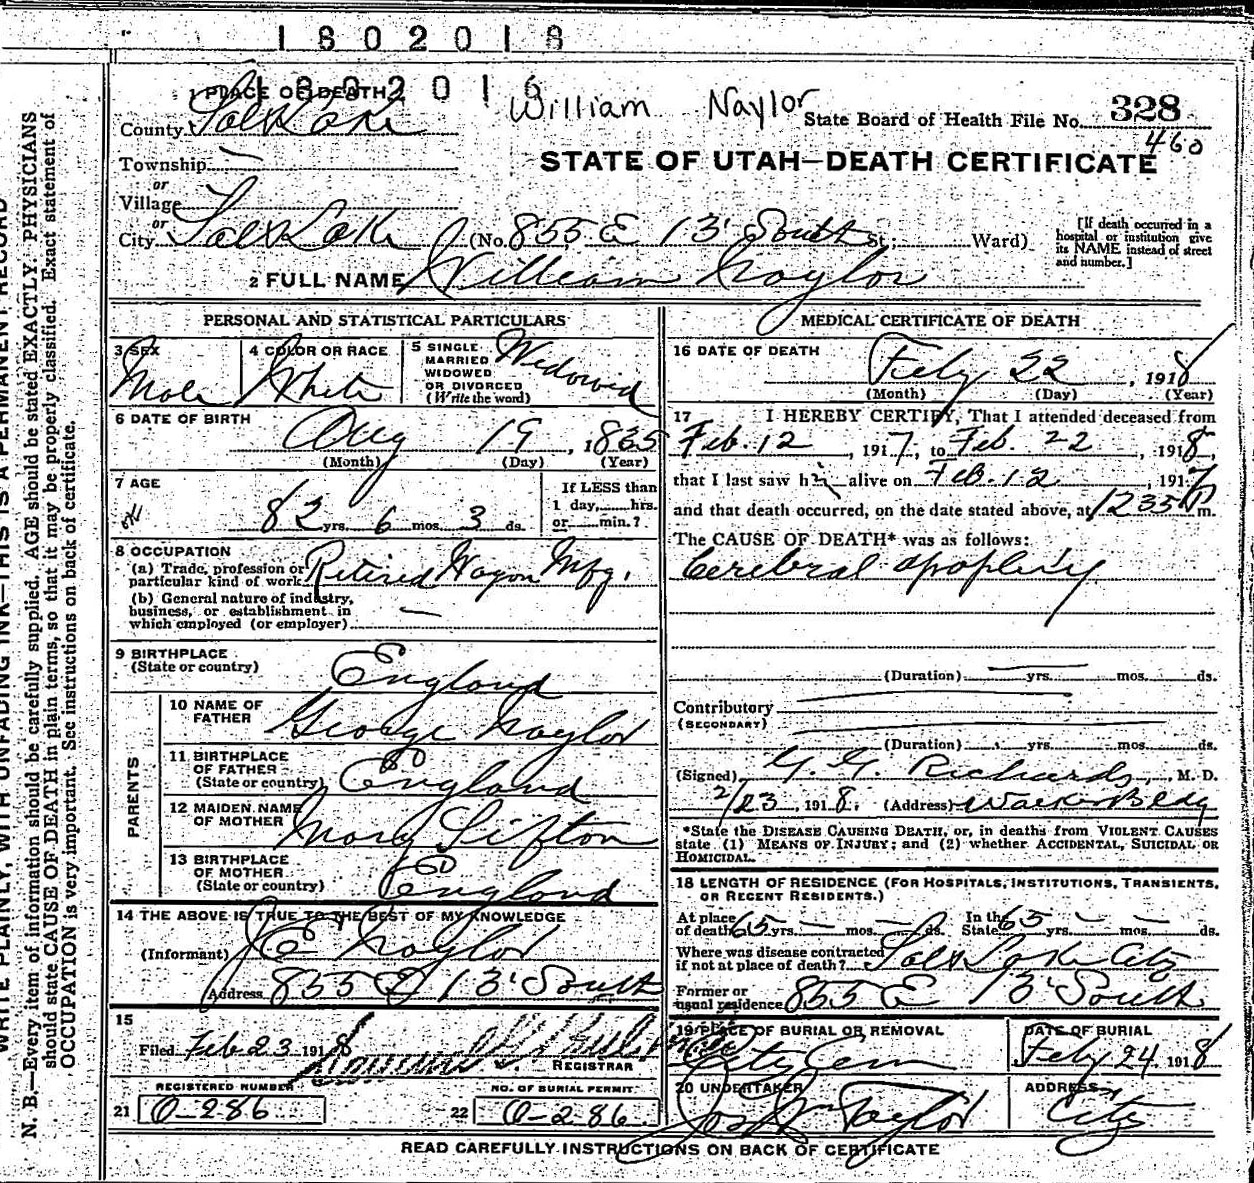 1802018
1802016
1 PLACE OF DEATH
William Naylor
County Salt Lake
State Board of Health File No. 328
460
Township —
STATE OF UTAH—DEATH CERTIFICATE
or
Village
or
City Salt Lake (No. 855 E 13' South St; Ward)
[If death occurred in a hospital or institution give its NAME instead of street and number.]
2 FULL NAME William Naylor
PERSONAL AND STATISTICAL PARTICULARS
3 SEX
Male
4 COLOR OR RACE
White
5 SINGLE MARRIED WIDOWED OR DIVORCED (Write the word)
Widowed
6 DATE OF BIRTH
Aug 19, 1835
(Month) (Day) (Year)
7 AGE
82 yrs. 6 mos. 3 ds.
If LESS than 1 day, hrs. or min.?
8 OCCUPATION
(a) Trade, profession or particular kind of work Retired Wagon Mfg.
(b) General nature of industry, business, or establishment in which employed (or employer) —
9 BIRTHPLACE
(State or country)
England
PARENTS
10 NAME OF FATHER
George Naylor
11 BIRTHPLACE OF FATHER (State or country)
England
12 MAIDEN NAME OF MOTHER
Mary Sifton
13 BIRTHPLACE OF MOTHER (State or country)
England
14 THE ABOVE IS TRUE TO THE BEST OF MY KNOWLEDGE
(Informant) J E Naylor
Address 855 E 13' South
15
Filed Feb 23 1918
REGISTRAR
REGISTERED NUMBER
21 O-286
NO. OF BURIAL PERMIT
22 O-286
MEDICAL CERTIFICATE OF DEATH
16 DATE OF DEATH
Feby 22, 1918
(Month) (Day) (Year)
17 I HEREBY CERTIFY, That I attended deceased from
Feb. 12, 1917, to Feb. 22, 1918,
that I last saw him alive on Feb. 12, 1917
and that death occurred, on the date stated above, at 1235 P m.
The CAUSE OF DEATH* was as follows:
Cerebral apoplexy
(Duration) yrs. mos. ds.
Contributory
(SECONDARY)
(Duration) yrs. mos. ds.
(Signed) G. G. Richards, M. D.
2/23, 1918. (Address) Walker Bldg
*State the DISEASE CAUSING DEATH, or, in deaths from VIOLENT CAUSES state (1) MEANS OF INJURY; and (2) whether ACCIDENTAL, SUICIDAL OR HOMICIDAL.
18 LENGTH OF RESIDENCE (FOR HOSPITALS, INSTITUTIONS, TRANSIENTS, OR RECENT RESIDENTS.)
At place of death 65 yrs. — mos. — ds. In the State 65 yrs. — mos. — ds.
Where was disease contracted if not at place of death? Salt Lake City
Former or usual residence 855 E 13' South
19 PLACE OF BURIAL OR REMOVAL
City Cem
DATE OF BURIAL
Feby 24 1918
20 UNDERTAKER
Jos Wm Taylor
ADDRESS
City
READ CAREFULLY INSTRUCTIONS ON BACK OF CERTIFICATE
WRITE PLAINLY, WITH UNFADING INK—THIS IS A PERMANENT RECORD
N. B.—Every item of information should be carefully supplied. AGE should be stated EXACTLY. PHYSICIANS
should state CAUSE OF DEATH in plain terms, so that it may be properly classified. Exact statement of
OCCUPATION is very important. See instructions on back of certificate.